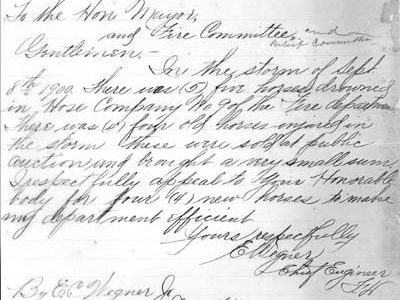 To the Hon Mayor,
and Fire Committee, and
Relief Committee
Gentlemen,-
In the storm of Sept.
8th 1900. There was (5) five horses drowned
in Hose Company No 9 of the Fire department
There was (4) four old horses injured in
the storm these were sold at public
auction and brought a very small sum
I respectfully appeal to Your Honorable
body for four (4) new horses to make
my department efficient
Yours respectfully
E Wegner,
Chief Engineer
By E C Wegner Jr